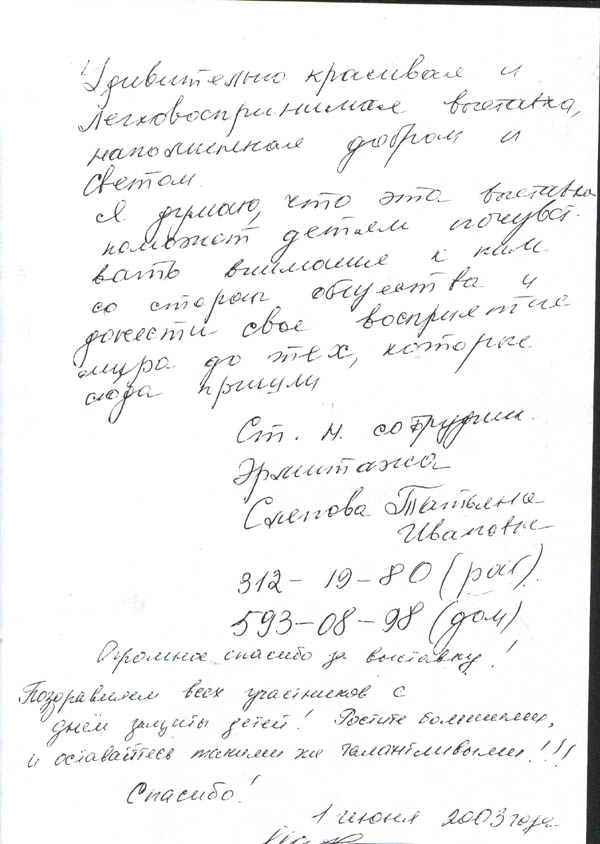 Удивительно красивая и
легковоспринимая выставка,
наполненная добром и
светом
Я думаю, что эта выставка
поможет детям почувст-
вать внимание к ним
со сторон общества и
донести свое восприятие
мира до тех, которые
сюда пришли
Ст. н. сотрудник
Эрмитажа
Слепова Татьяна
Ивановна
312-19-80 (раб).
593-08-98 (дом)
Огромное спасибо за выставку!
Поздравляем всех участников с
днём защиты детей! Ростите большими,
и оставайтесь такими же талантливыми!!!
Спасибо!
1 июня 2003 года